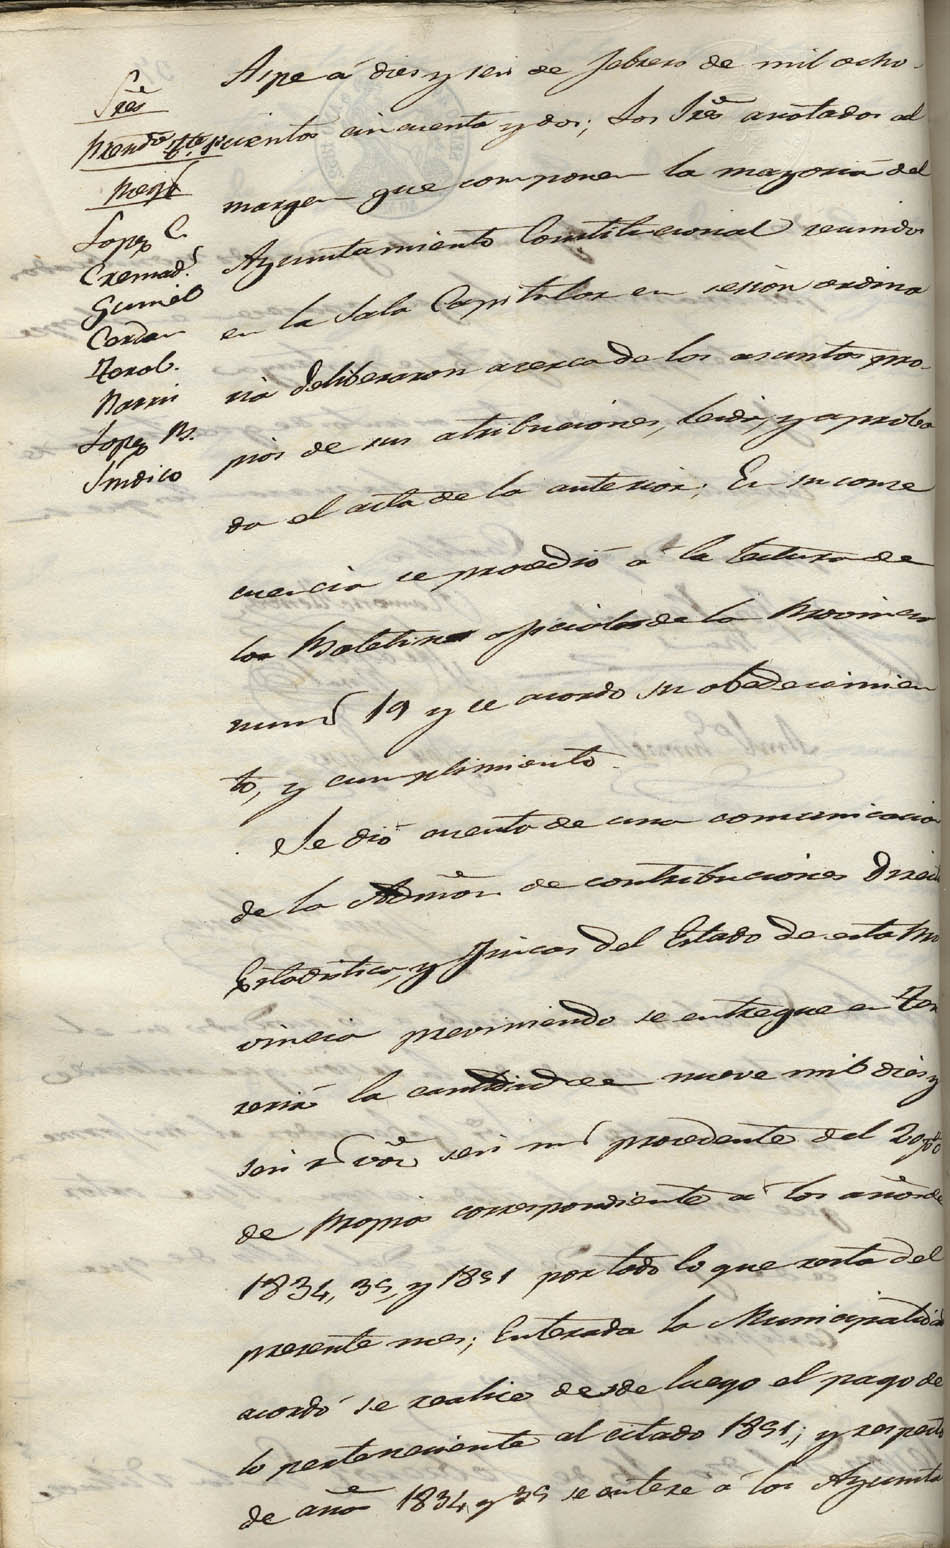 Sres
Presid.te
Mejía
Lopez C.
Cremad.s
Gumiel
Cerdan
Torol.
Marin
Lopez M.
Sindico
Aspe á dies y seis de febrero de mil ocho
cientos cincuenta y dos; Los Sres anotados al
margen que componen la mayoria del
Ayuntamiento Constitucional reunidos
en la Sala Capitular en sesion ordina
ria deliberaron acerca de los asuntos pro-
pios de sus atribuciones, leida, y aproba
da el acta de la anterior; En su conse
cuencia se procedió á la lectura de
los Boletines oficiales de la Provincia
num.s 19 y se acordó su obedecimien
to, y cumplimiento.
Se dió cuenta de una comunicacion
de la Admon de contribuciones Direct
Estadistica, y fincas del Estado de esta Pro
vincia previniendo se entregue en Teso
reria la cantidad de nueve mil dies y
seis r.s von seis m.s procedente del 20 p%
de Propios correspondiente á los años de
1834, 35, y 1851 por todo lo que resta del
presente mes; Enterada la Municipalidad
acordó se realice desde luego el pago de
lo perteneciente al citado 1851; y respecto
de años 1834 y 35 se entere á los Ayunta